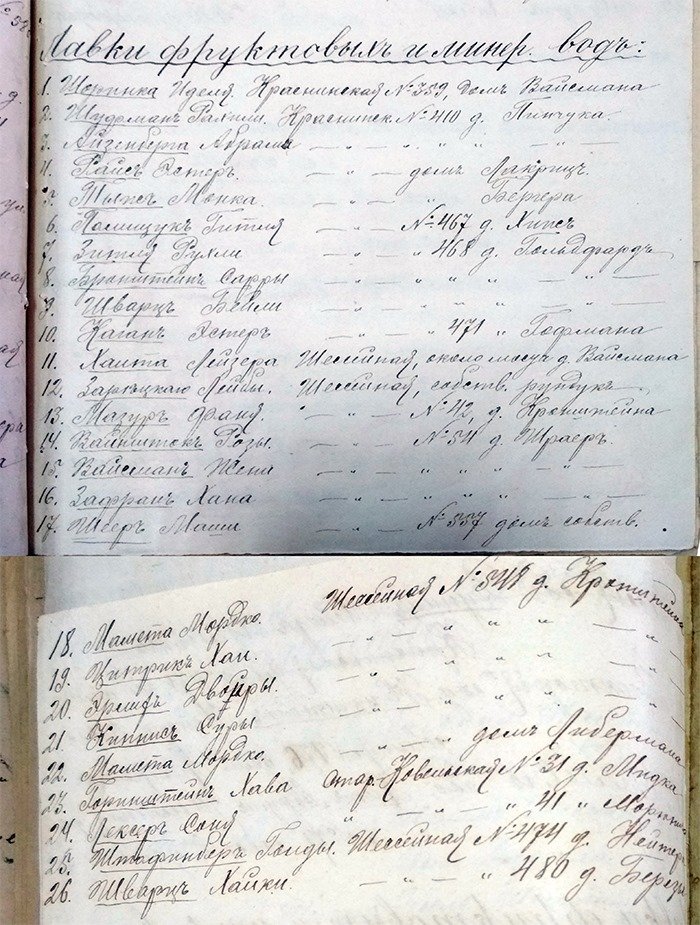 Лавки фруктовыхъ и минер. водъ:
1. Шепинка Иделя. Краснинская № 359, домъ Вайсмана
2. Шудрманъ Рахили. Краснинск. № 410 д. Пинчука.
3. Айзенберга Абрама — „ — „ „ — „ —
4. Райсъ Эстеръ. — „ — домъ Лакрицъ.
5. Монка. — „ — „ Бергера
6. Полищукъ Гитля — „ — № 467 д. Хипсъ
7. Зителя Рухли — „ — „ 468 д. Гольдфардъ
8. Бронштейнъ Сарры — „ — „ „ „ — „ —
9. Шварцъ Бейли — „ — „ „ „ — „ —
10. Каганъ Эстеръ — „ — „ 471 „ Гофмана
11. Хаита Лейзера Шоссейная, около д. Вайсмана
12. Зарюцкаго Лейбы. Шоссейная, собств. рундукъ
13. Мазуръ Фаня. — „ — № 42, д. Кронштейна
14. Вайнштокъ Розы. — „ — № 54 д. Шраеръ.
15. Вайсманъ Шена — „ — „ „ „ — „ —
16. Зафранъ Хана — „ — „ „ „ — „ —
17. Шееръ Маши — „ — № 557 домъ собств.
18. Мамета Мордко. Шоссейная № 548 д. Кронштейна
19. Цитрикъ Хаи. — „ — „ „ „
20. Двойры. — „ — „ „ „
21. Кипнисъ Суры — „ — „ „ „
22. Мамета Мордко. — „ — „ домъ Либермана
23. Горинштейнъ Хава стар. Ковельская № 31 д. Мидка
24. Лексеръ Соня „ — „ — „ 41 „
25. Штофинберъ Голды. Шоссейная № 474 д.
26. Шварцъ Хайки. — „ — „ 480 д.